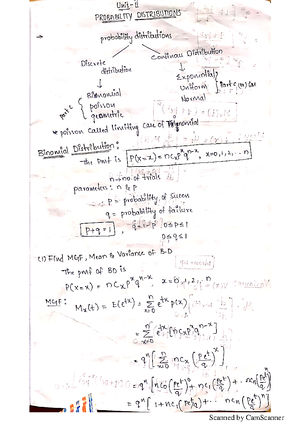 Unit-II
PROBABILITY DISTRIBUTIONS
probability distributions
Discrete distribution
Continuous Distribution
Binomial
poisson
geometric
Exponential
Uniform
Normal
Part-C
* poisson called limiting case of Binomial
Binomial Distribution:
the pmf is P(X=x) = nCx p^x q^(n-x), x=0,1,2,...n
n→no. of trials
parameters: n & p
p = probability of success
q = probability of failure
p+q=1, q=1-p 0≤p≤1
0≤q≤1
(1) Find MGF, Mean & Variance of B.D
The pmf of BD is
P(X=x) = nCx p^x q^(n-x), x=0,1,2,...n
MGF: Mx(t) = E(e^tx) = Σ_{x=0}^{n} e^tx p(x)
= Σ_{x=0}^{n} e^tx [nCx p^x q^(n-x)]
= q^n [Σ_{x=0}^{n} nCx (pe^t/q)^x]
= q^n [nC0 (pe^t/q)^0 + nC1 (pe^t/q)^1 + ... nCn (pe^t/q)^n]
= q^n [1 + nC1 (pe^t/q) + ... nCn (pe^t/q)^n]
Scanned by CamScanner